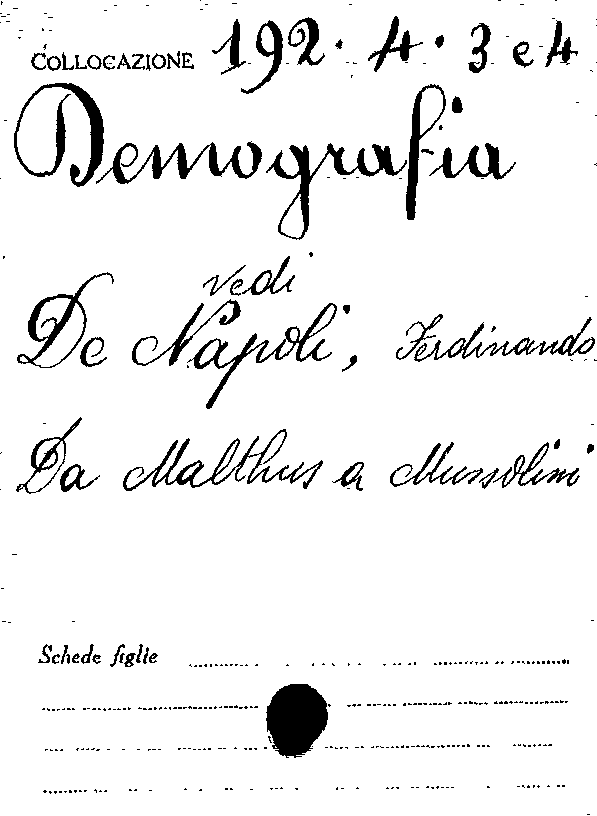 COLLOCAZIONE 192. 4. 3 e 4
Demografia
vedi
De Napoli, Ferdinando
Da Malthus a Mussolini
Schede figlie